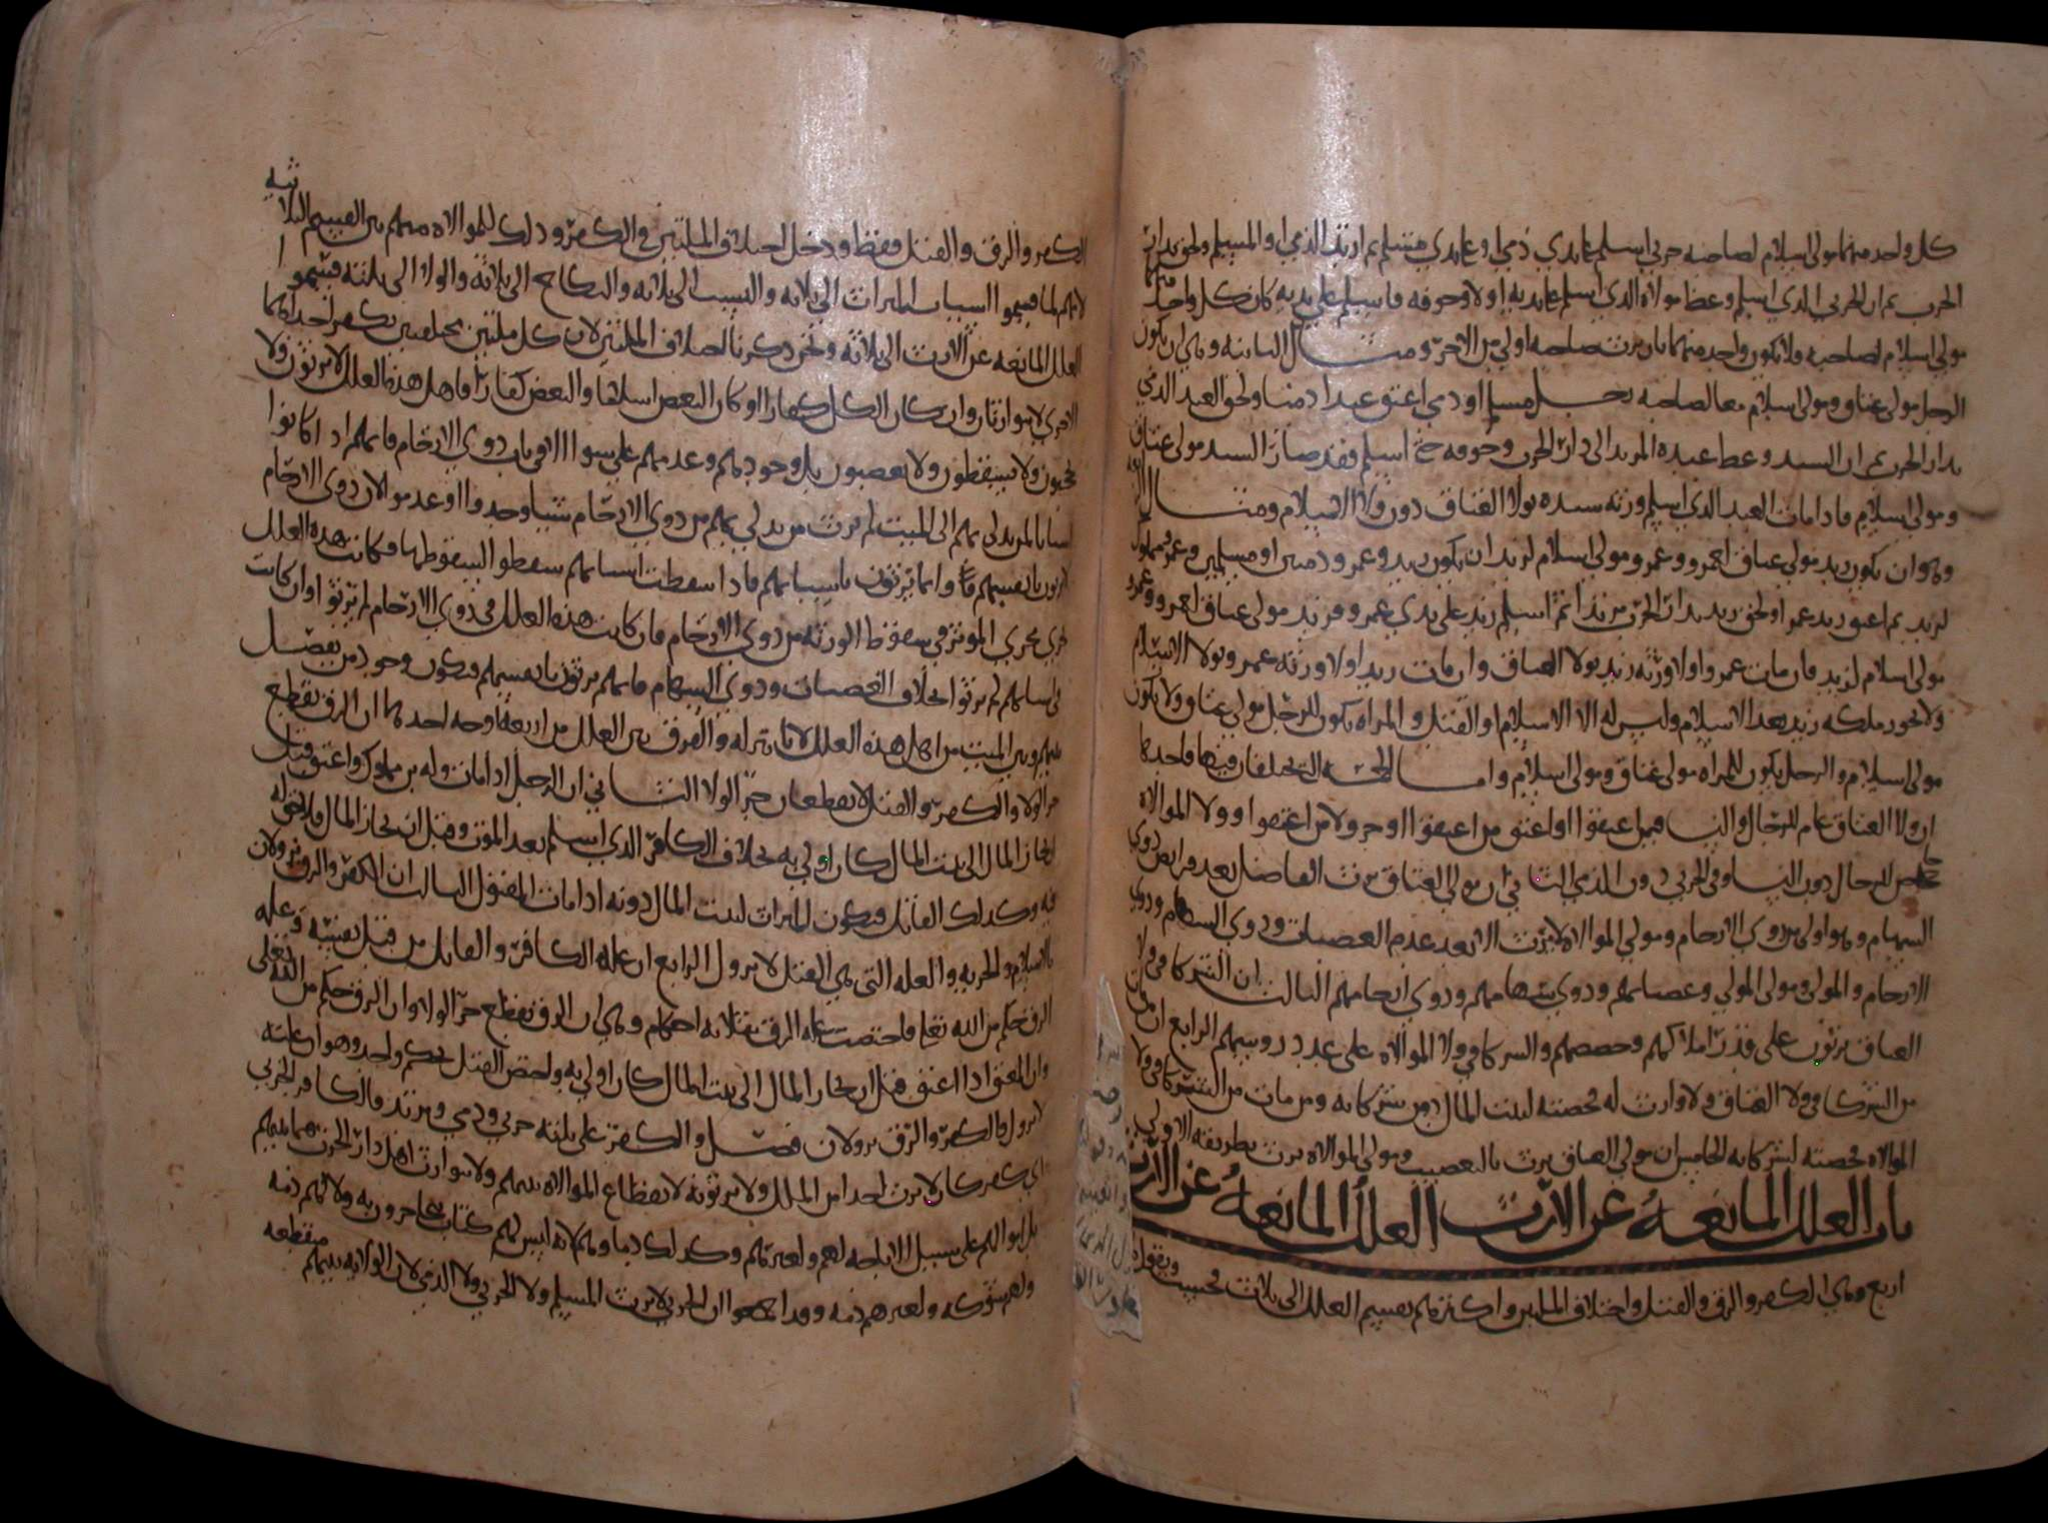 كل واحد منهما مولى اسلام لصاحبه حربي اسلم على يدي ذمي او على يدي مسلم ثم ارتد الذمي او المسلم ولحق بدار
الحرب ثم ان الحربي الذي اسلم وعظ مولاه الذي اسلم على يديه اولا وخوفه فاسلم على يديه كان كل واحد منهما
مولى اسلام لصاحبه ولا يكون واحد منهما بان يرث صاحبه اولى من الاخر ومثال الثانيه وهي ان يكون
الرجل مولى عتاق ومولى اسلام معا لصاحبه رجل مسلم او ذمي اعتق عبدا ذميا ولحق العبد الذمي
بدار الحرب ثم ان السيد وعظ عبده المرتد الى دار الحرب وخوفه حتى اسلم فقد صار السيد مولى عتاق
ومولى اسلام فاذا مات العبد الذي اسلم ورثه سيده بولا العتاق دون ولا الاسلام ومثال
وهو ان يكون زيد مولى عتاق لعمرو وعمرو مولى اسلام لزيد ان يكون زيد وعمرو ذميين او مسلمين وعمرو مملوك
لزيد ثم اعتق زيد عمرا ولحق زيد بدار الحرب مرتدا ثم اسلم زيد على يدي عمرو فزيد مولى عتاق لعمرو وعمرو
مولى اسلام لزيد فان مات عمرو اولا ورثه زيد بولا العتاق وان مات زيد اولا ورثه عمرو بولا الاسلام
ولا يجوز ملكه زيد بعد الاسلام وليس له الا الاسلام او القتل والمراه يكون للرجل مولى عتاق ولا يكون
مولى اسلام والرجل يكون للمراه مولى عتاق ومولى اسلام واما الخمسه التي يختلفان فيها فاحدها
ان ولا العتاق عام للرجال والنسا فيمن اعتقوا او اعتق من اعتقوا او جر ولا من اعتقوا وولا الموالاه
خاص للرجال دون النسا وفي الحربي دون الذمي الثاني ان مولى العتاق يرث الفاضل بعد فرايض ذوي
السهام وهو اولى من ذوي الارحام ومولى الموالاه لا يرث الا بعد عدم العصبات وذوي السهام وذوي
الارحام والمولى ومولى المولى وعصباتهم وذوي سهامهم وذوي ارحامهم الثالث ان الشركا في ولا
العتاق يرثون على قدر املاكهم وحصصهم والشركا في ولا الموالاه على عدد روسهم الرابع ان من مات
من الشركا في ولا العتاق ولا وارث له فحصته لبيت المال دون شركائه ومن مات من الشركا في ولا
الموالاه فحصته لشركائه الخامس ان مولى العتاق يرث بالتعصيب ومولى الموالاه يرث بطريقه الاولى
باب العلل المانعه عن الارث العلل المانعه عن الارث
اربع وهي الكفر والرق والقتل واختلاف الملتين واكثرهم يقسم العلل الى ثلاث فحسب ويقول
الكفر والرق والقتل فقط ودخل اختلاف الملتين في الكفر وذلك للموالاه منهم بين القسم الثلاثيه
لانهم لما قسموا اسباب الميراث الى ثلاثه والنسب الى ثلاثه والنكاح الى ثلاثه والولا الى ثلثه قسموا
العلل المانعه عن الارث الى ثلاثه ونحن ذكرنا اختلاف الملتين لان كل ملتين مختلفين بكفر احداهما
الاخرى لا يتوارثان وان كان الكل كفارا او كان البعض اسلاما والبعض كفارا فاهل هذه العلل لا يرثون ولا
يحجبون ولا يسقطون ولا يعصبون بل وجودهم وعدمهم على سوا الا في باب ذوي الارحام فانهم اذا كانوا
اسبابا لمن يدلي بهم الى الميت لم يرث من يدلي بهم من ذوي الارحام شيا وجدوا او عدموا لان ذوي الارحام
لا يرثون بانفسهم وانما يرثون باسبابهم فاذا سقطت اسبابهم سقطوا لسقوطها وكانت هذه العلل
تجري مجرى الموثر في سقوط الورثه من ذوي الارحام فان كانت هذه العلل في ذوي الارحام لم يرثوا وان كانت
في اسبابهم لم يرثوا بخلاف العصبات وذوي السهام فانهم يرثون بانفسهم فيكون وجود من يفصل
بينهم وبين الميت من اهل هذه العلل لا تاثير له والفرق بين العلل من اربعه اوجه احدهما ان الرق يقطع
جر الولا والكفر والقتل لا يقطعان جر الولا الثاني ان الرجل اذا مات وله بن مملوك واعتق قبل
يحاز المال الى بيت المال كان اولى به بخلاف الكافر الذي اسلم بعد الموت وقبل ان يحاز المال فلا حق له
فيه وكذلك القاتل فيكون الميراث لبيت المال دونه اذا مات المقتول الثالث ان الكفر والرق يزولان
بالاسلام والحريه والعله التي هي القتل لا يزول الرابع ان عله الكافر والقاتل من قبل نفسه وعله
الرق حكم من الله تعالى فاختصت عله الرق بثلاثه احكام وهي ان الرق يقطع جر الولا وان الرق حكم من الله تعالى
وان المعتق اذا اعتق قبل ان يحاز المال الى بيت المال كان اولى به ولختص القتل بحكم واحد وهو ان علته
لا يزول والكفر والرق يزولان فصل والكفر على ثلثه حربي وذمي ومرتد فالكافر الحربي
اي كفر كان لا يرث احدا من الملل ولا يرثونه لانقطاع الموالاه بينهم ولا يتوارث اهل دار الحرب فيما بينهم
بل اموالهم على سبيل الاباحه لهم ولغيرهم وكذلك دماوهم لانه ليس لهم كتاب يتحاجزون به ولا لهم ذمه
ولهم شوكه ولغيرهم ذمه وقد اجمعوا ان الحربي لا يرث المسلم ولا الحربي ولا الذمي لان الولايه بينهم منقطعه